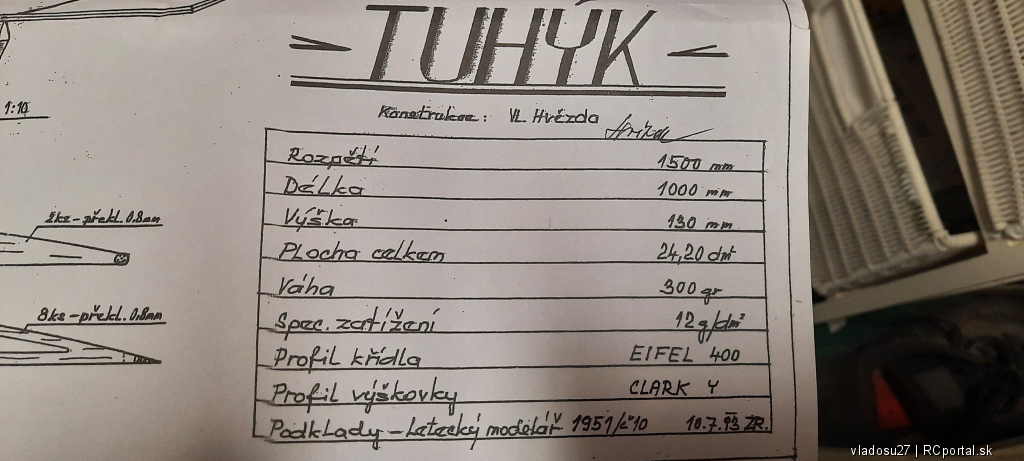 TUHÝK
1:10
Konstrukce: VL. Hvězda
Rozpětí 1500 mm
Délka 1000 mm
Výška 130 mm
Plocha celkem 24,20 dm²
Váha 300 gr
Spec. zatížení 12 g/dm²
Profil křídla EIFEL 400
Profil výškovky CLARK Y
Podklady - Letecký modelář 1951/č10 10.7.93 ZR.
2ks - překl. 0.8mm
8ks - překl. 0.8mm
vladosu27 | RCportal.sk